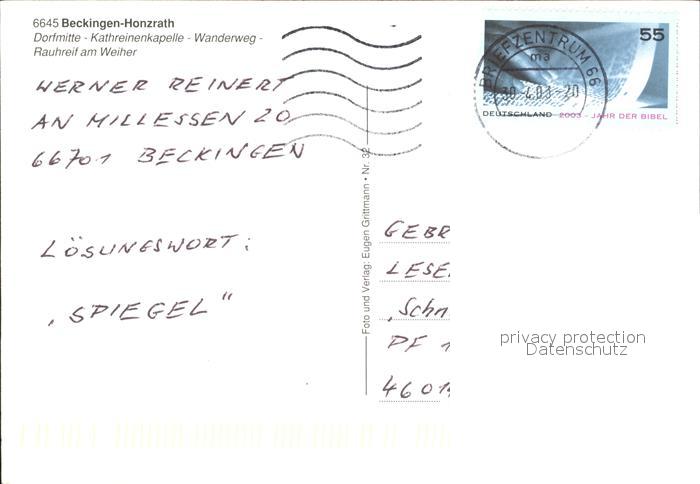 6645 Beckingen-Honzrath
Dorfmitte - Kathreinenkapelle - Wanderweg -
Rauhreif am Weiher
WERNER REINERT
AN MILLESSEN 20
66701 BECKINGEN
LÖSUNGSWORT:
„SPIEGEL"
Foto und Verlag: Eugen Grittmann • Nr. 32
BRIEFZENTRUM 66
ma
30.4.03-20
55
DEUTSCHLAND 2003 - JAHR DER BIBEL
GEBR
LESE
„Schn
PF 1
4601
privacy protection
Datenschutz